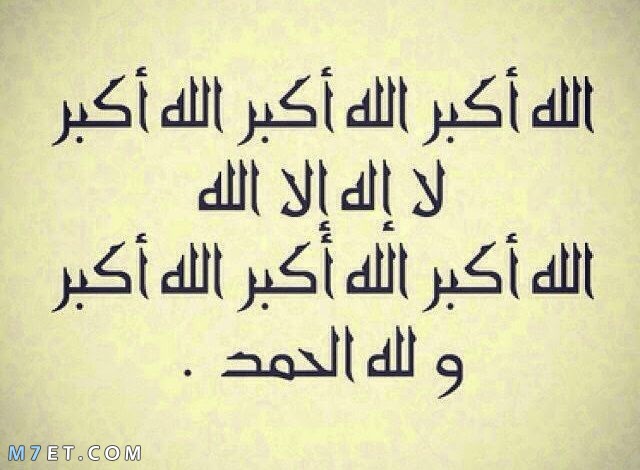 الله أكبر الله أكبر الله أكبر
لا إله إلا الله
الله أكبر الله أكبر الله أكبر
و لله الحمد .
M7ET.COM